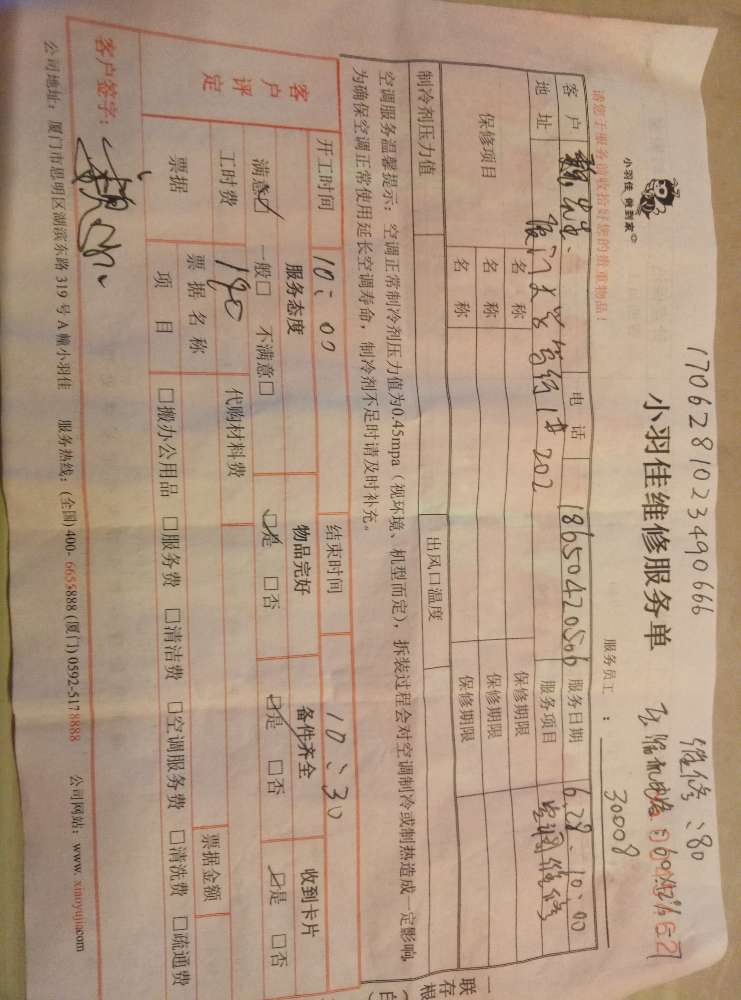 1706281023490666
维修：80
小羽佳 做到家
小羽佳维修服务单
服务员工：30008
请您于服务前收拾好您的贵重物品！
客户 魏先生 电话 18650420506 服务日期 6.28. 10:00
地址 厦门大学 202 服务项目 空调维修
保修项目 名称 保修期限
名称 保修期限
名称 保修期限
制冷剂压力值 出风口温度
空调服务温馨提示：空调正常制冷剂压力值为0.45mpa（视环境、机型而定），拆装过程会对空调制冷或制热造成一定影响，
为确保空调正常使用延长空调寿命，制冷剂不足时请及时补充。
开工时间 10:00 结束时间 10:30
客户评定 服务态度 物品完好 备件齐全 收到卡片
满意☑ 一般□ 不满意□ ☑是 □否 ☑是 □否 ☑是 □否
工时费 代购材料费
票据 票据名称 票据金额
项目 □搬办公用品 □服务费 □清洁费 □空调服务费 □清洗费 □疏通费
客户签字：
公司地址：厦门市思明区湖滨东路319号A幢小羽佳 服务热线：(全国) 400-6655888 (厦门) 0592-5178888 公司网站：www.xiaoyujia.com
一联存根